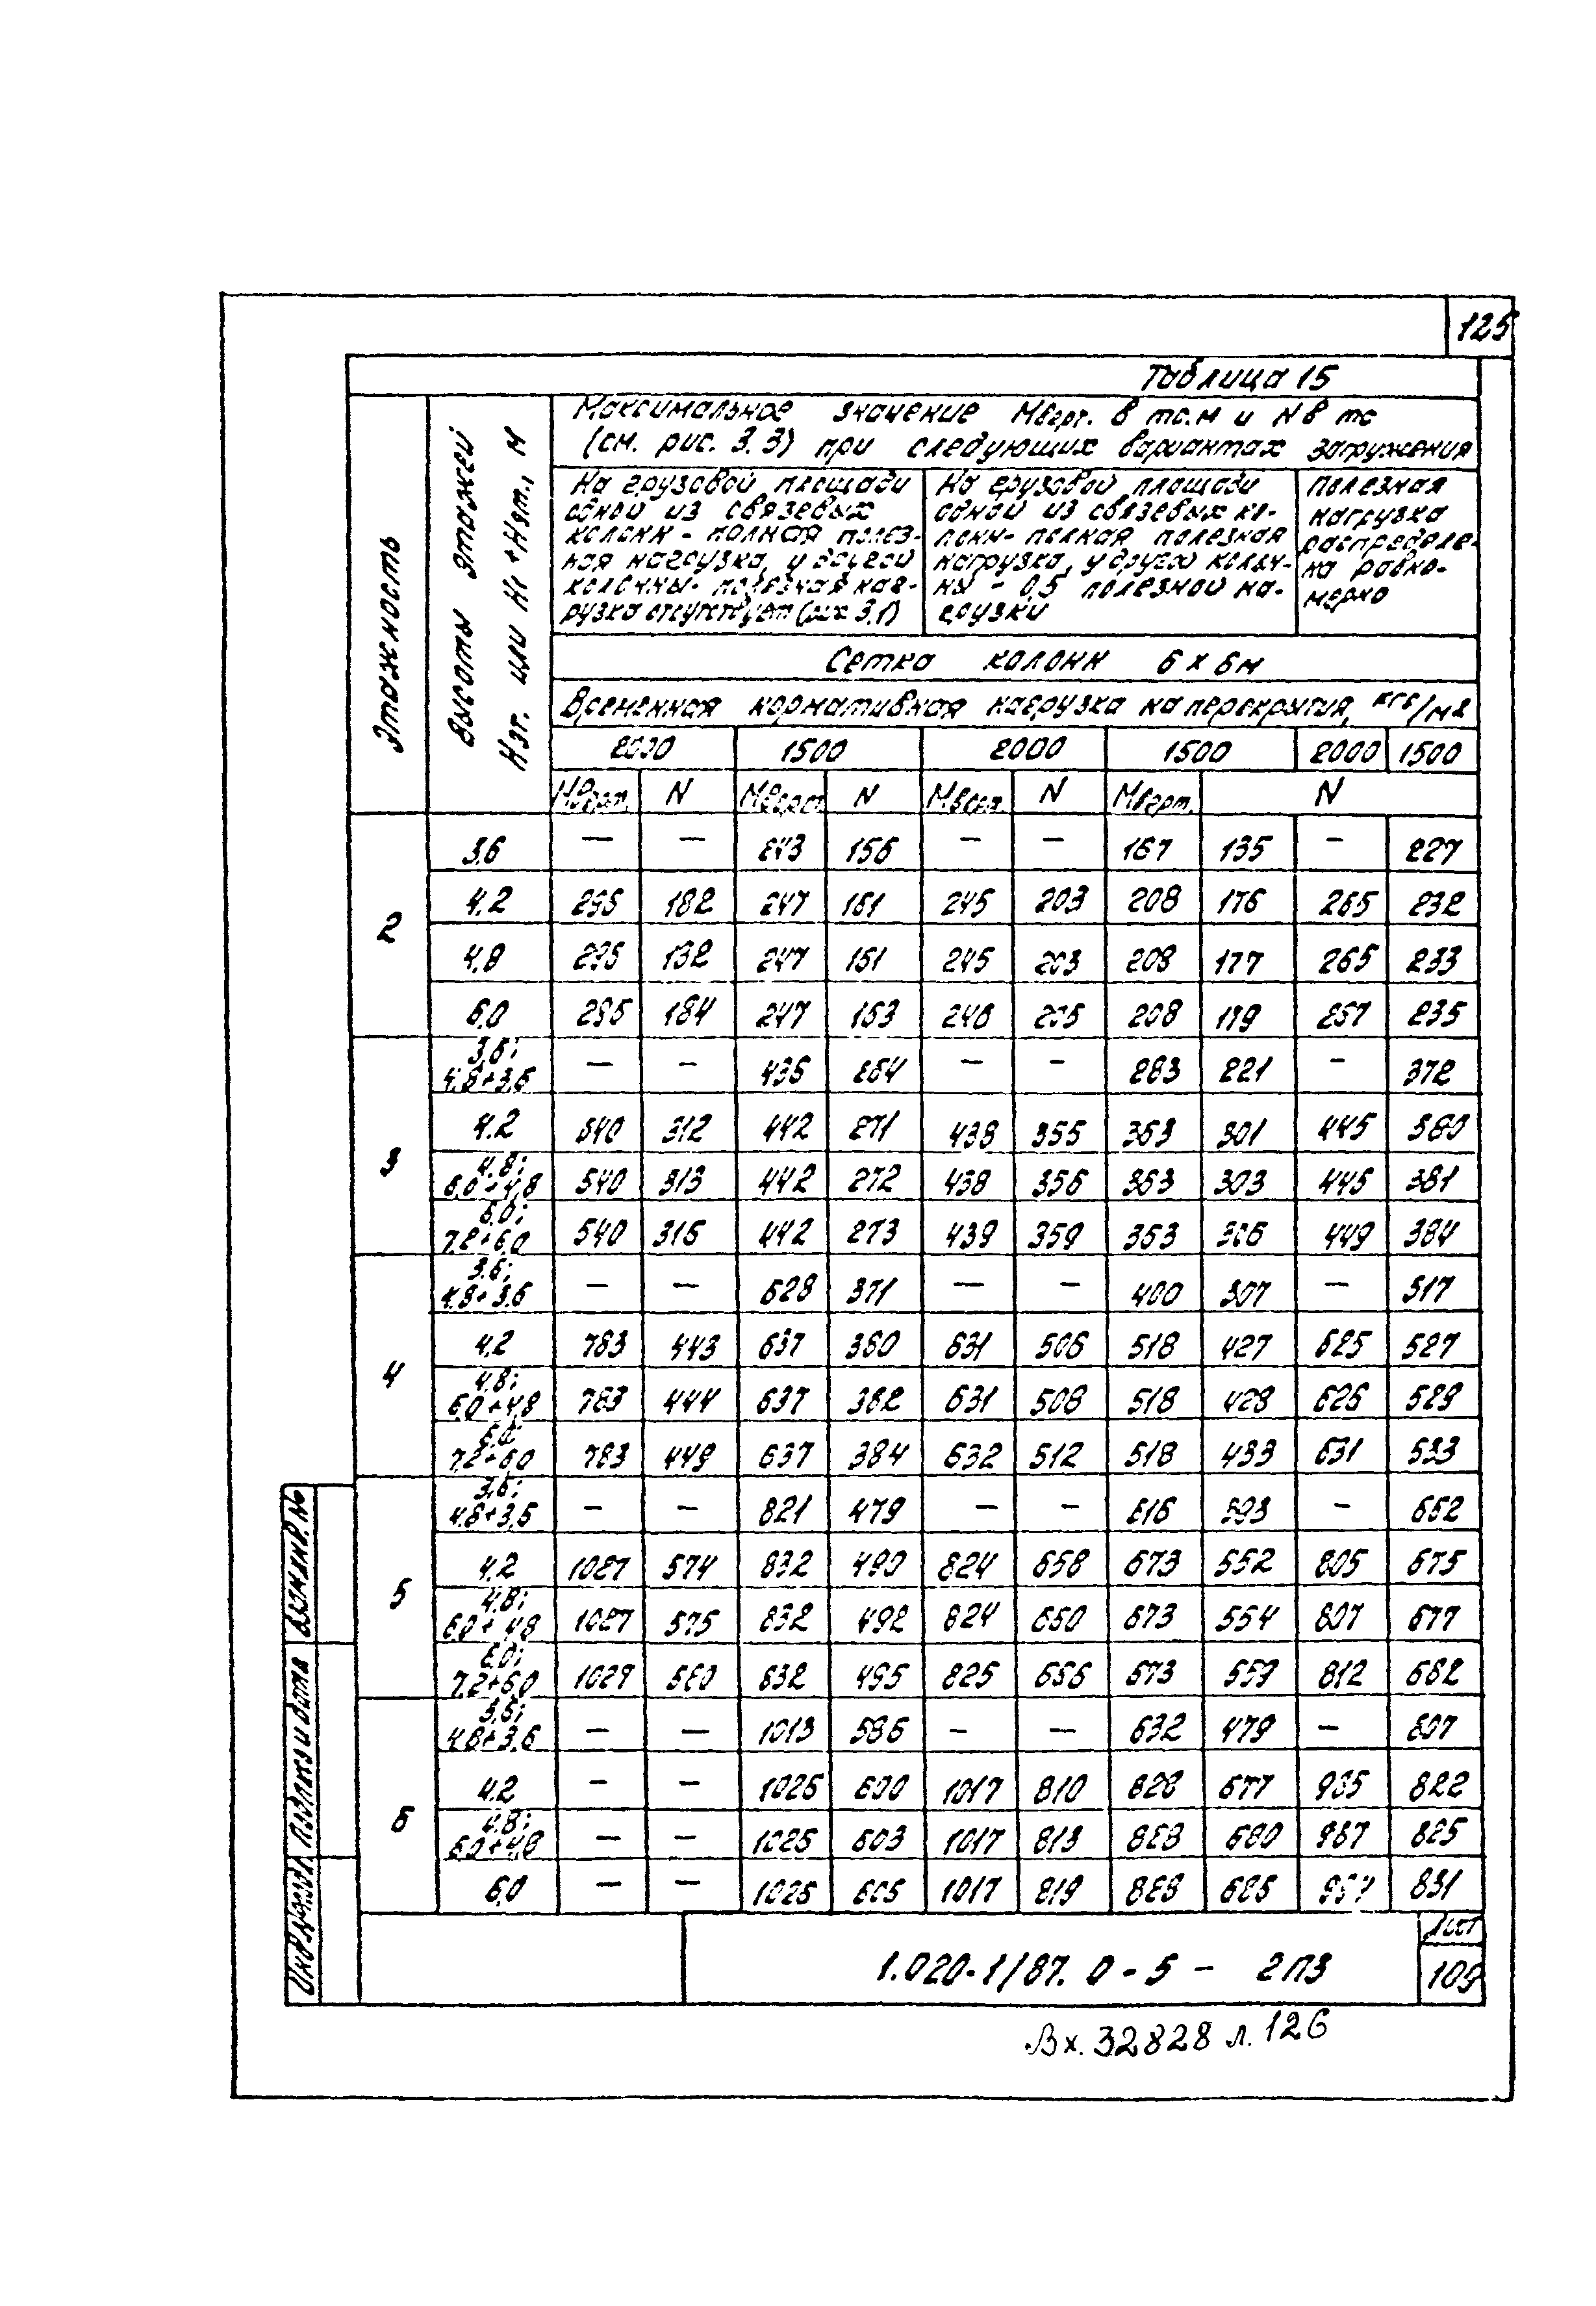 125
Таблица 15
Этажность
Высоты этажей
Нэт. или Н1 + Нэт., м
Максимальное значение Мверт. в тс.м и N в тс
(см. рис. 3.3) при следующих вариантах загружения
На грузовой площади
одной из связевых
колонн - полная полез-
ная нагрузка, у другой
колонны - полезная наг-
рузка отсутствует (рис 3.1)
На грузовой площади
одной из связевых ко-
лонн - полная полезная
нагрузка, у другой колон-
ны - 0,5 полезной на-
грузки
Полезная
нагрузка
распределе-
на равно-
мерно
Сетка колонн 6 х 6 м
Временная нормативная нагрузка на перекрытия, кгс/м2
2000 1500 2000 1500 2000 1500
Мверт. N Мверт. N Мверт. N Мверт. N
2
3.6 — — 243 156 — — 167 135 — 227
4.2 295 182 247 161 245 203 208 176 265 232
4.8 295 182 247 161 245 203 208 177 265 233
6.0 295 184 247 163 246 205 208 179 267 235
3
3.6;
4.8+3.6 — — 435 264 — — 283 221 — 372
4.2 540 312 442 271 438 355 363 301 445 380
4.8;
6.0+4.8 540 313 442 272 438 356 363 303 445 381
6.0;
7.2+6.0 540 316 442 273 439 359 363 306 449 384
4
3.6;
4.8+3.6 — — 628 371 — — 400 307 — 517
4.2 783 443 637 380 631 506 518 427 625 527
4.8;
6.0+4.8 783 444 637 382 631 508 518 428 626 529
6.0;
7.2+6.0 783 449 637 384 632 512 518 433 631 533
5
3.6;
4.8+3.6 — — 821 479 — — 516 393 — 662
4.2 1027 574 832 490 824 658 673 552 805 675
4.8;
6.0+4.8 1027 575 832 492 824 660 673 554 807 677
6.0;
7.2+6.0 1029 580 832 495 825 666 673 559 812 682
6
3.6;
4.8+3.6 — — 1013 586 — — 632 479 — 807
4.2 — — 1026 600 1017 810 828 677 985 822
4.8;
6.0+4.8 — — 1026 603 1017 813 828 680 987 825
6.0 — — 1026 605 1017 819 828 686 831
Взам.инв.№
Подпись и дата
Инв.№ подл.
1.020-1/87. 0-5- 2ПЗ
Лист
109
Вх. 32828 л. 126